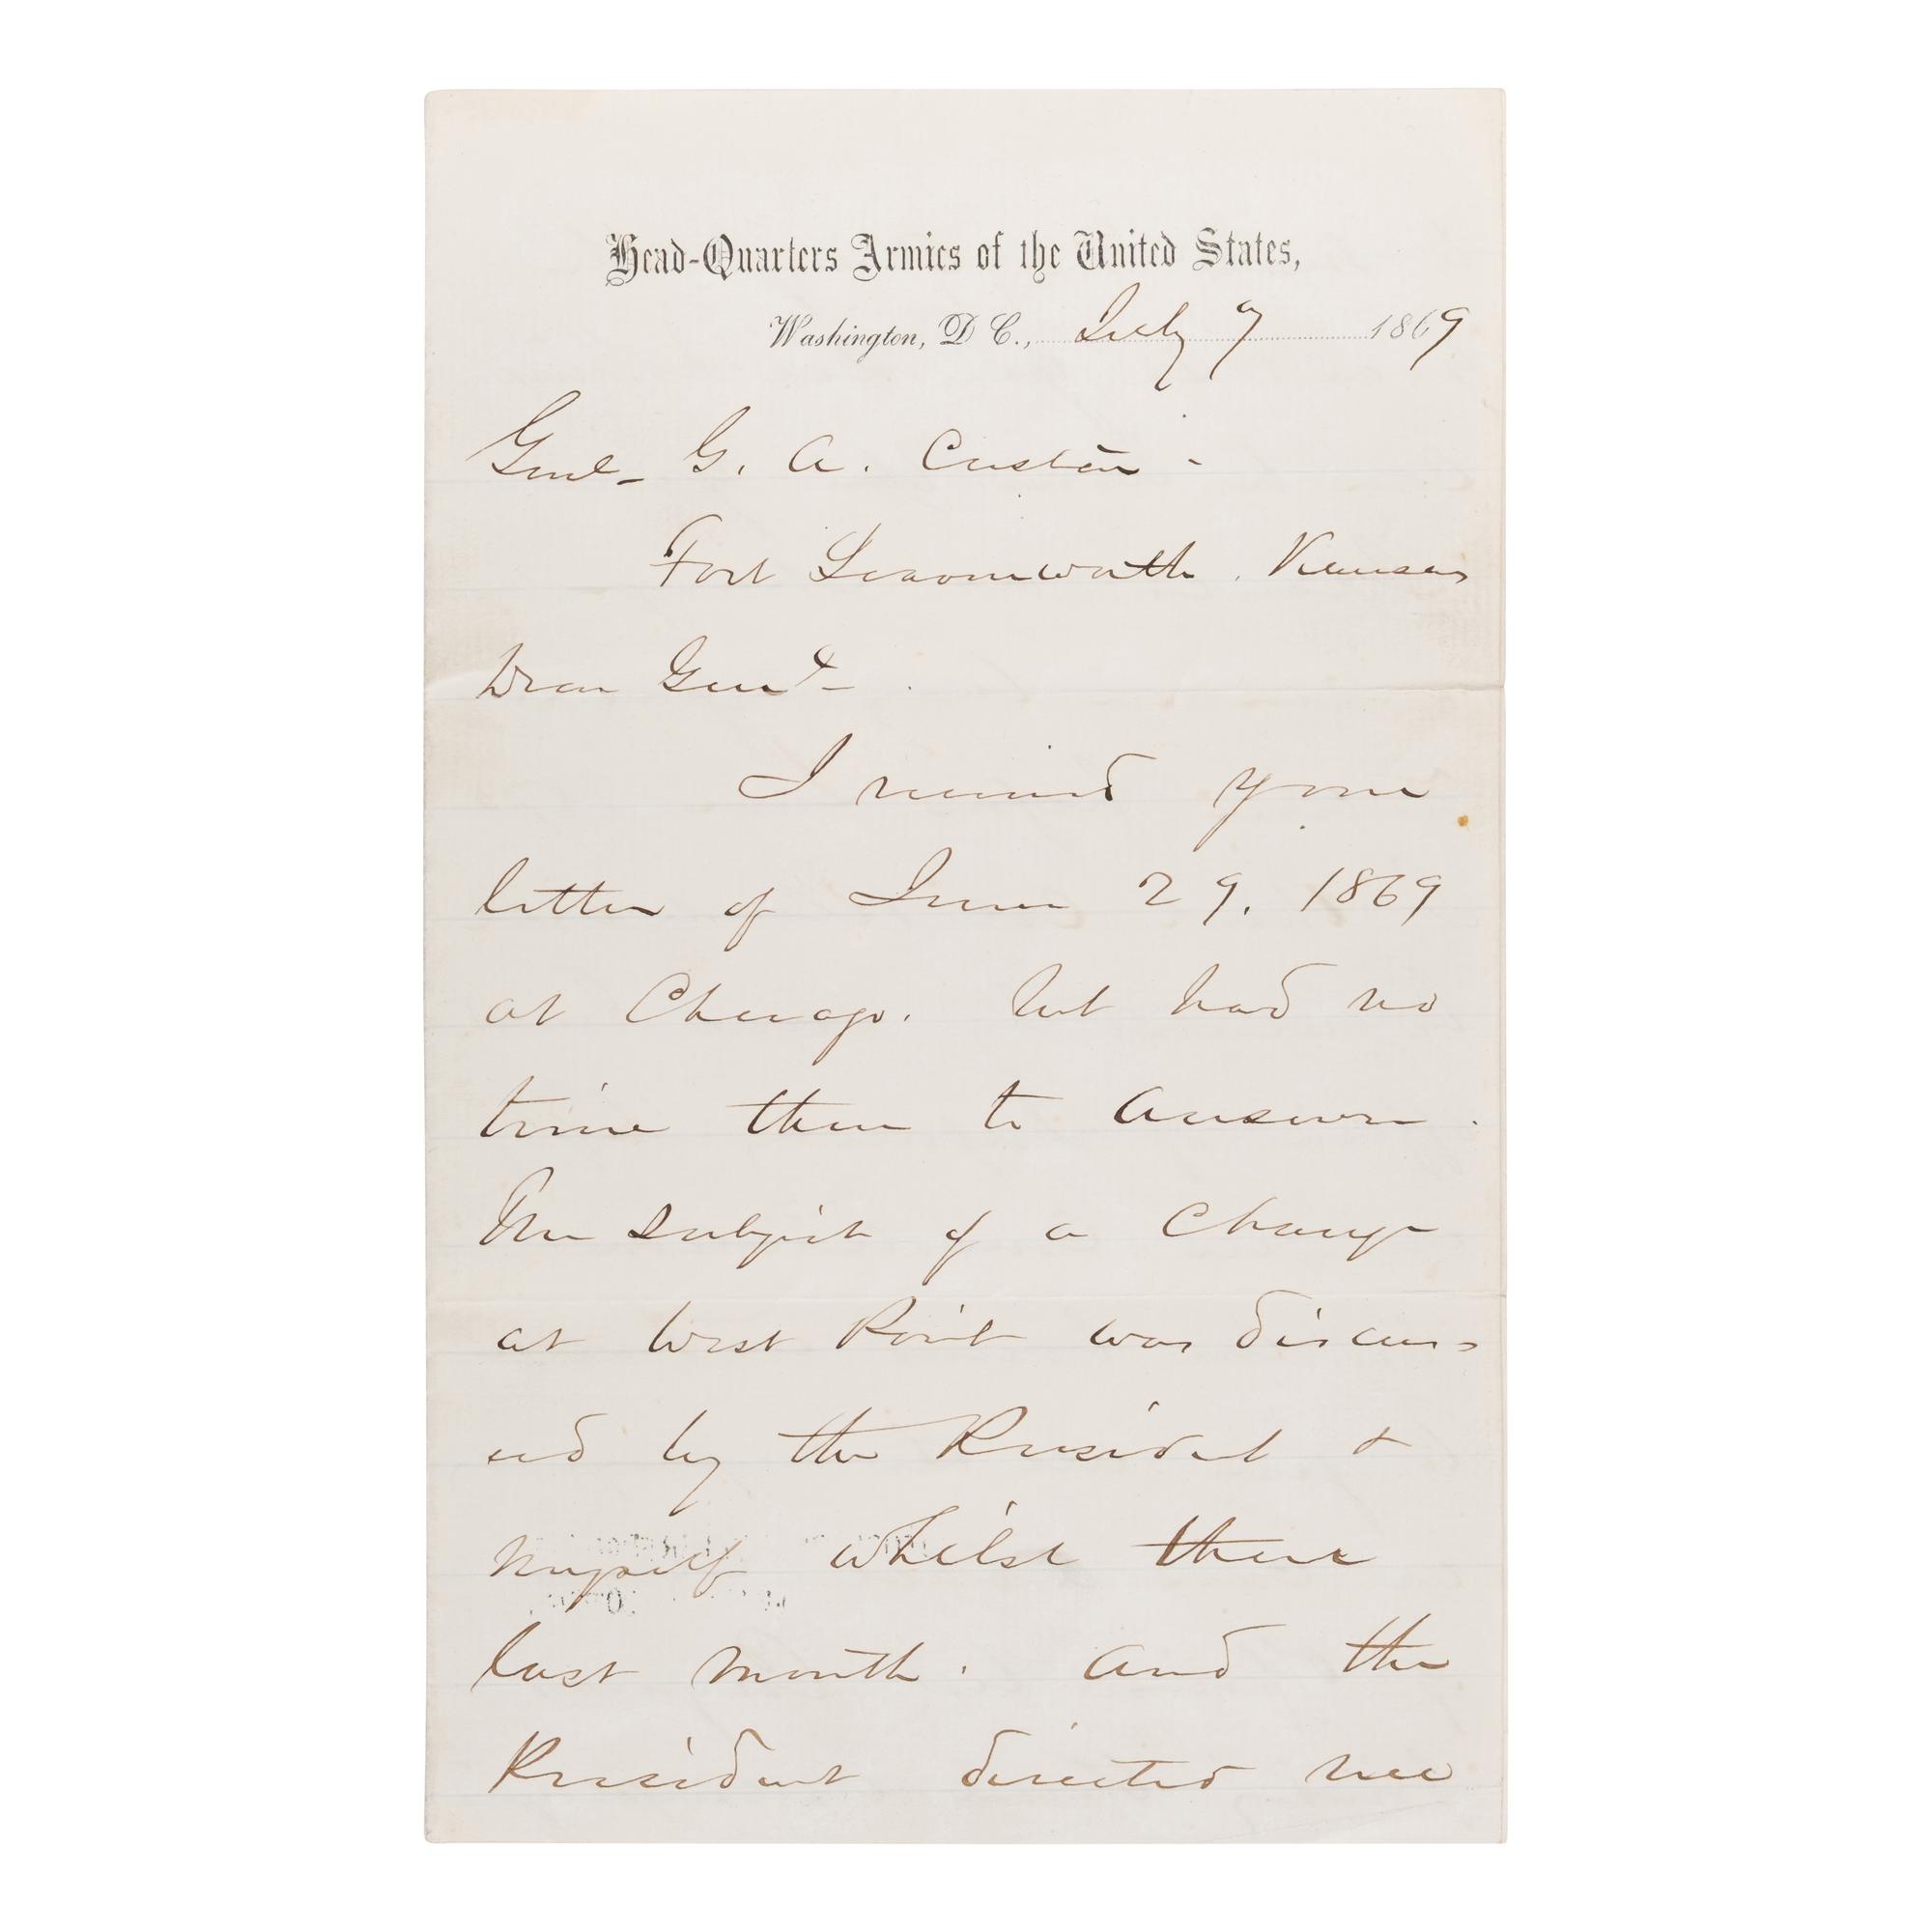 Head-Quarters Armies of the United States,
Washington, D C., July 7 1869
Genl. G. A. Custer.
Fort Leavenworth, Kansas
Dear Genl.
I received your
letter of June 29, 1869
at Chicago, but had no
time then to answer.
The subject of a change
at West Point was discuss
ed by the President &
myself whilst there
last month, and the
President directed me